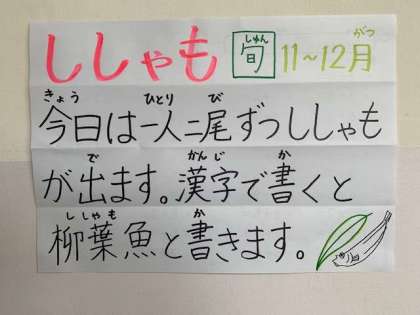 ししゃも 旬 11~12月
しゅん がつ
きょう ひとり び
今日は一人二尾ずつししゃも
で かんじ か
が出ます。漢字で書くと
ししゃも か
柳葉魚と書きます。